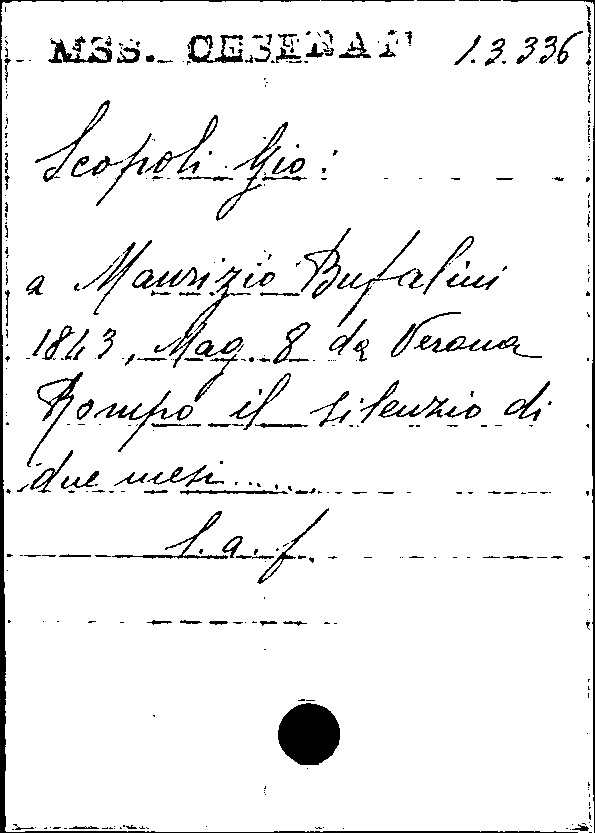 MSS. CESENAT 1.3.336
Scopoli Gio:
a Maurizio Bufalini
1843, Mag. 8 da Verona
Rompo il silenzio di
due mesi......
l. a. f.